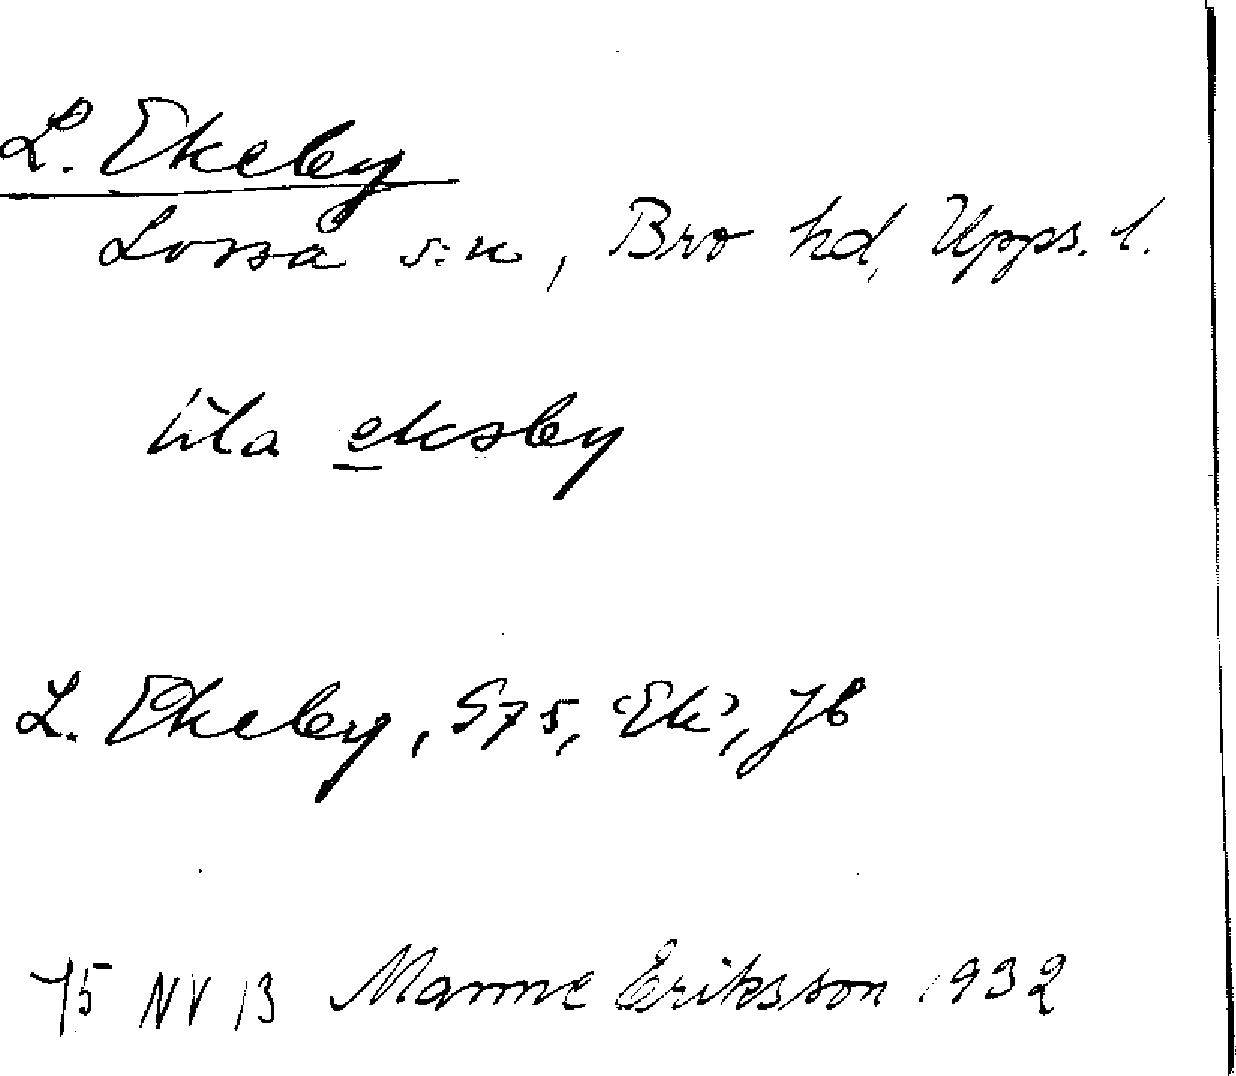 L. Ekeby
Lossa sn, Bro hd, Upps. l.
lila ekəby
L. Ekeby, S75, 'Ek', Jb
75 NV 13 Manne Eriksson 1932